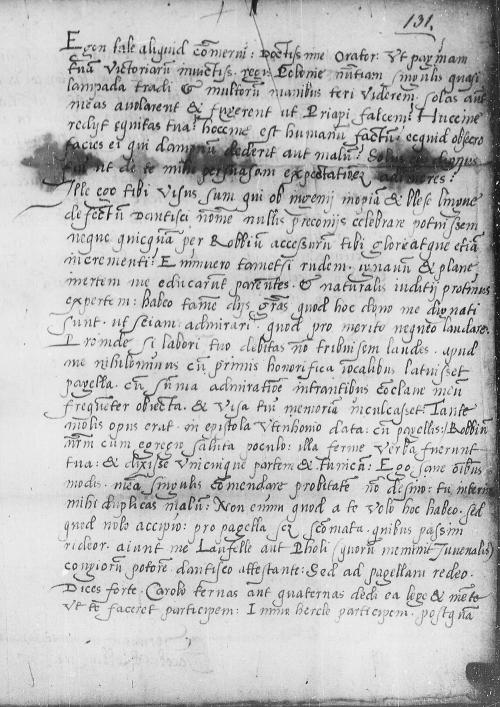 131.
Egon tale aliquid comerui: Doctissime Orator: Ut paginam
tuam Victoriarum inuictiss. regis Poloniae nuntiam singulis quasi
lampada tradi & multorum manibus teri viderem. solas aut
meas auolarent & fugerent ut Priapi falcem? Huccine
redijt equitas tua? hoccine est humanum factum? ecquid obsecro
facies ei qui damnum dederit aut malum?
ut de te mihi persuasam expectationem
Ille ego tibi visus sum qui ob ingenij inopiam & blese lingue
defectum Dantisci nomen nullis preconijs celebrare potuissem
neque quicquam per Robbium accessurum tibi gloriae atque etiam
incrementi? Enimuero tametsi rudem, ignauum & plane
inertem me educarunt parentes. & naturalis iuditij protinus
expertem: habeo tamen dijs gratias quod hoc dono me dignati
sunt. ut sciam admirari. quod pro merito nequeo laudare.
Proinde si labori tuo debitas non tribuissem laudes. apud
me nihilominus cum primis honorifica vocalibus latuisset
pagella. cum summa admiratione intrantibus conclaue meum
frequenter obiecta. & visa tui memoriam inculcasset. Tante
molis opus erat. in epistola data: cum pagellis: Robbium
nostrum cum egregie saluta poculo: illa ferme verba fuerunt
tua: & dixisse unicuique partem & tunicam: Ego sane omnibus
modis. meam singulis comendare probitatem non desino: tu interim
mihi duplicas malum: Non enim quod a te volo hoc habeo. sed
quod nolo accipio: pro pagella scilicet scommata. quibus passim
rideor. aiunt me Laufelle aut Pholi (quorum meminit Juuenalis)
congiorum potorem. dantisco attestante: Sed ad pagellam redeo.
Dices forte. Carolo ternas aut quaternas dedi ea lege & mente
ut te faceret participem: Immo hercle participem. postquam